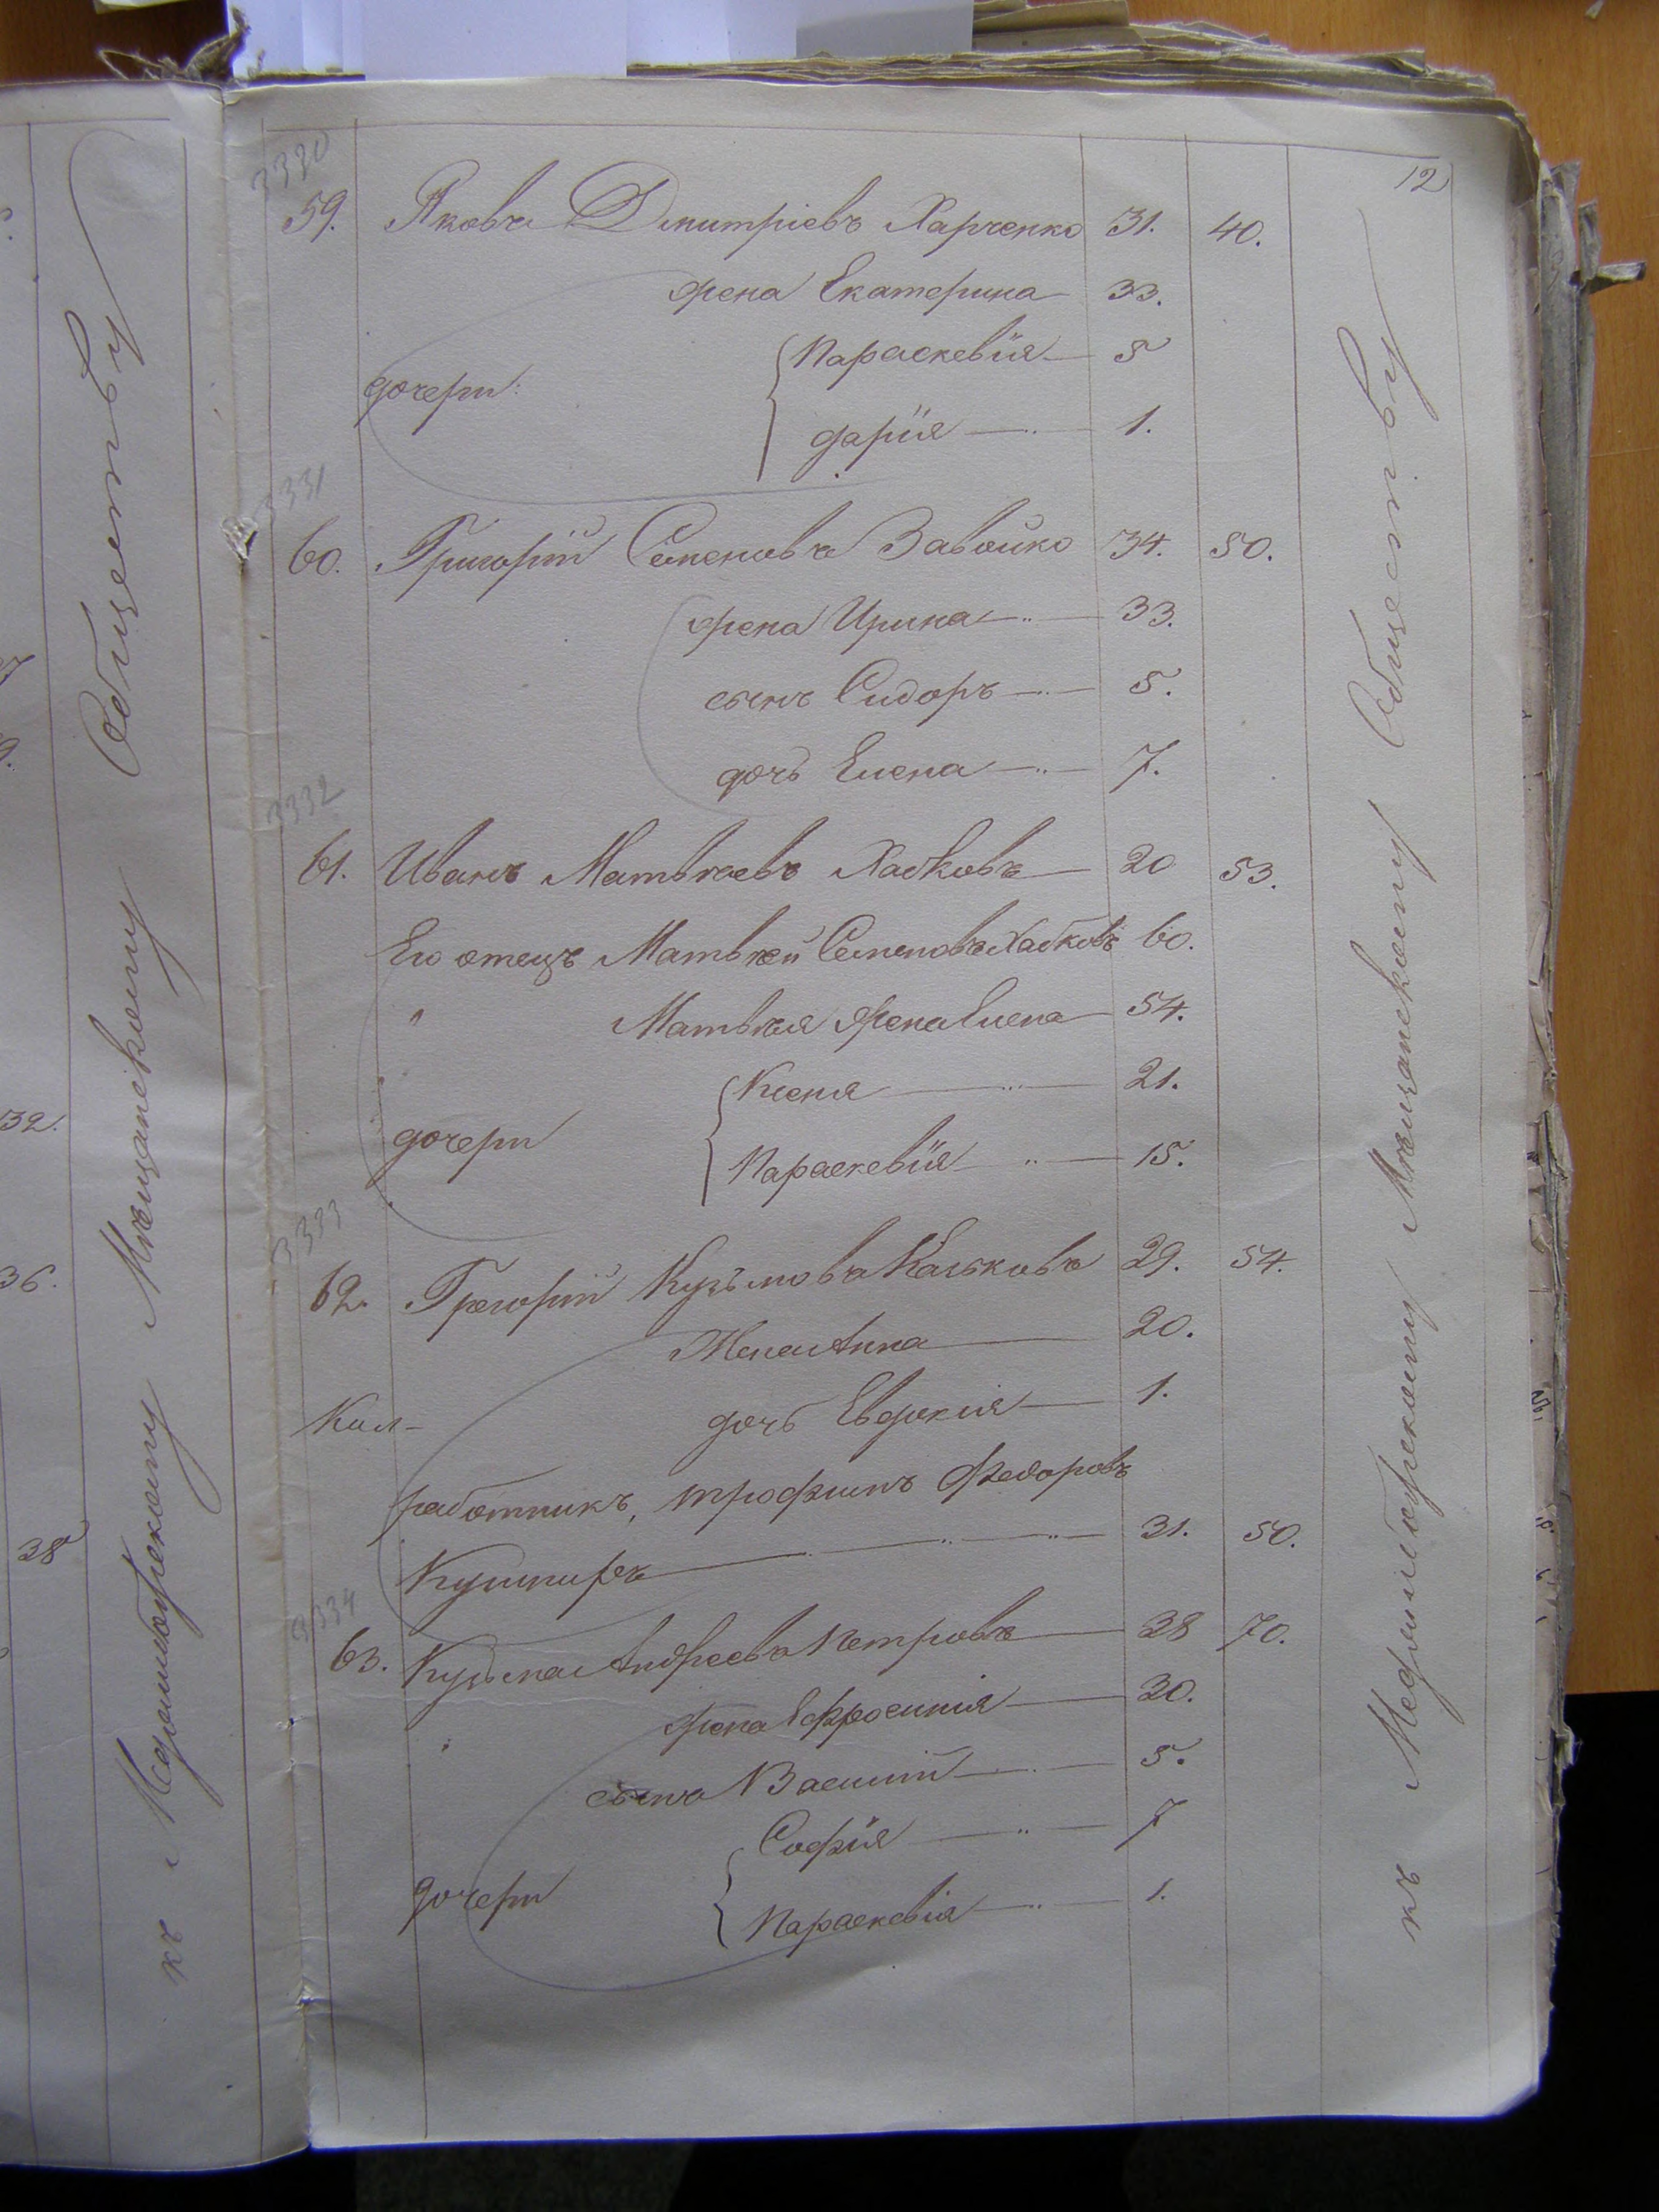 12
3330
59. Яковъ Дмитріевъ Харченко 31. 40.
жена Екатерина 33.
дочери: Параскевія 5
дарія 1.
3331
60. Григорій Семеновъ Завойко 34. 50.
жена Ирина 33.
сынъ Сидоръ 5.
дочь Елена 7.
3332
61. Иванъ Матвѣевъ Хабковъ 20 53.
Его отецъ Матвѣй Семеновъ Хабковъ 60.
" Матвѣя жена Елена 54.
дочери Ксенія 21.
Параскевія 15.
3333
62. Григорій Кузьмовъ 29. 54.
Жена Анна 20.
дочь Евдокия 1.
работникъ, трофимъ Федоровъ
Кушниръ 31. 50.
3334
63. Кузьма Андреевъ Петровъ 38 70.
жена Ефросинія 30.
сынъ Василій 5.
дочери Софія 7
Параскевія 1.
къ Мелитопольскому Мѣщанскому Обществу
къ Мелитопольскому Мѣщанскому Обществу
32.
36.
38